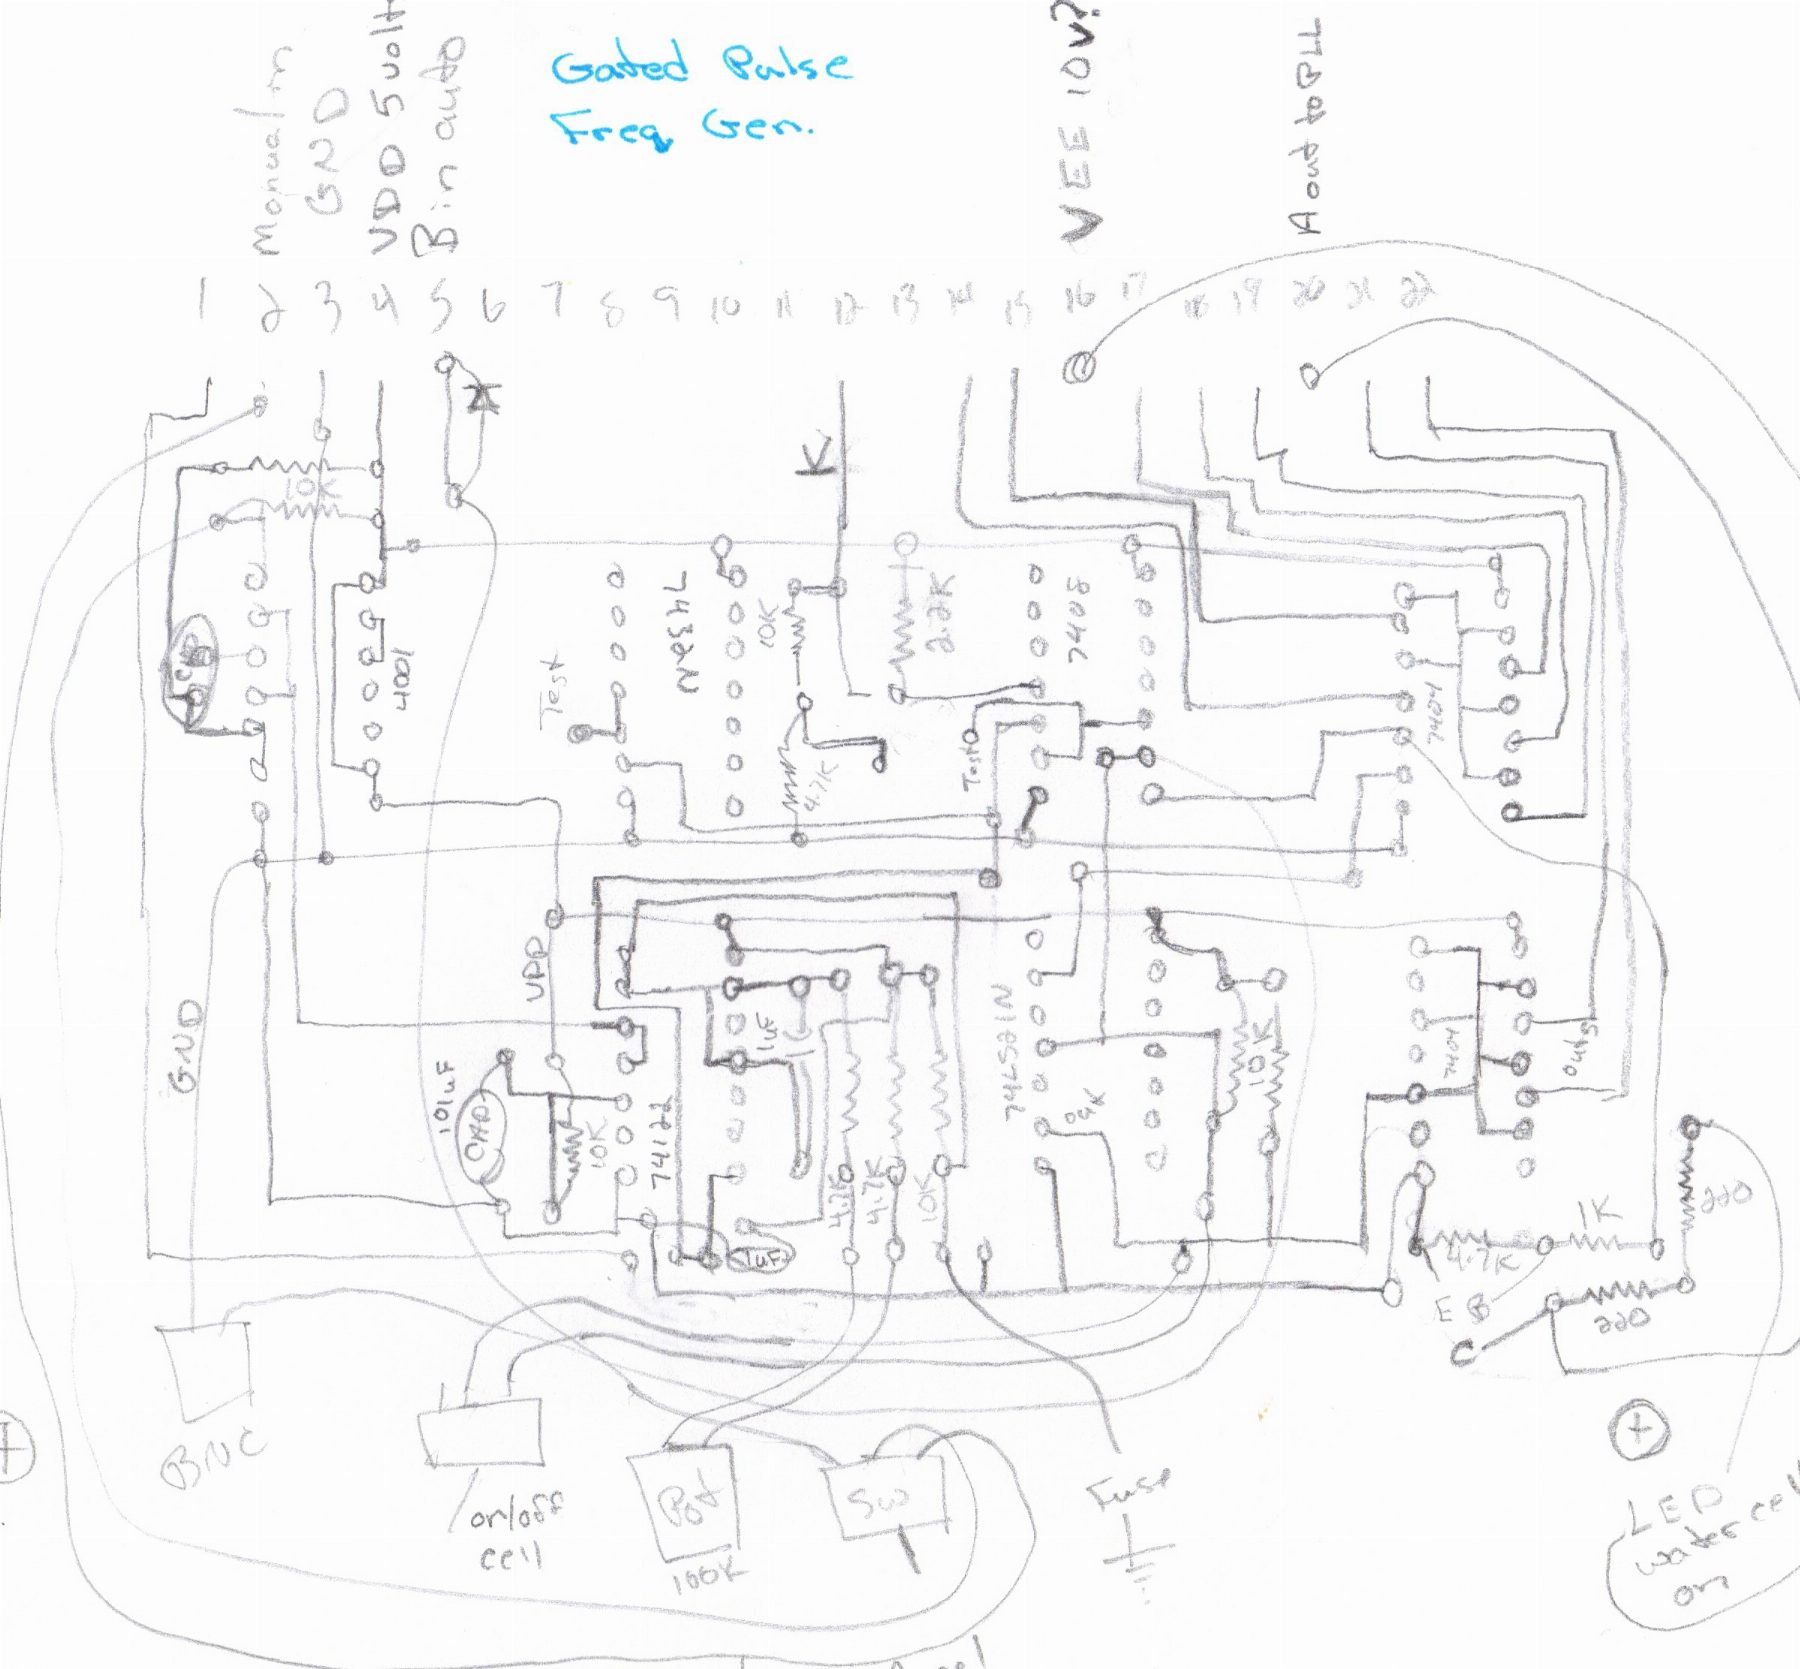 Gated Pulse
Freq Gen.
GND
VDD 5volt
Bin auto
VEE 10V?
Aout to
1 2 3 4 5 6 7 8 9 10 11 12 13 14 15 16 17 18 19 20 21 22
K
10K
CAP
4001
Test
10K
2.2K
7408
7404
4.7K
Test
VDD
GND
101uF
CAP
10K
74122
1uF
4.7K
4.7K
10K
1uF
74LS21N
10K
7404
Outs
220
1K
4.7K
E B
C
220
BNC
on/off
cell
Pot
100K
SW
Fuse
+
+
LED
water cell
on